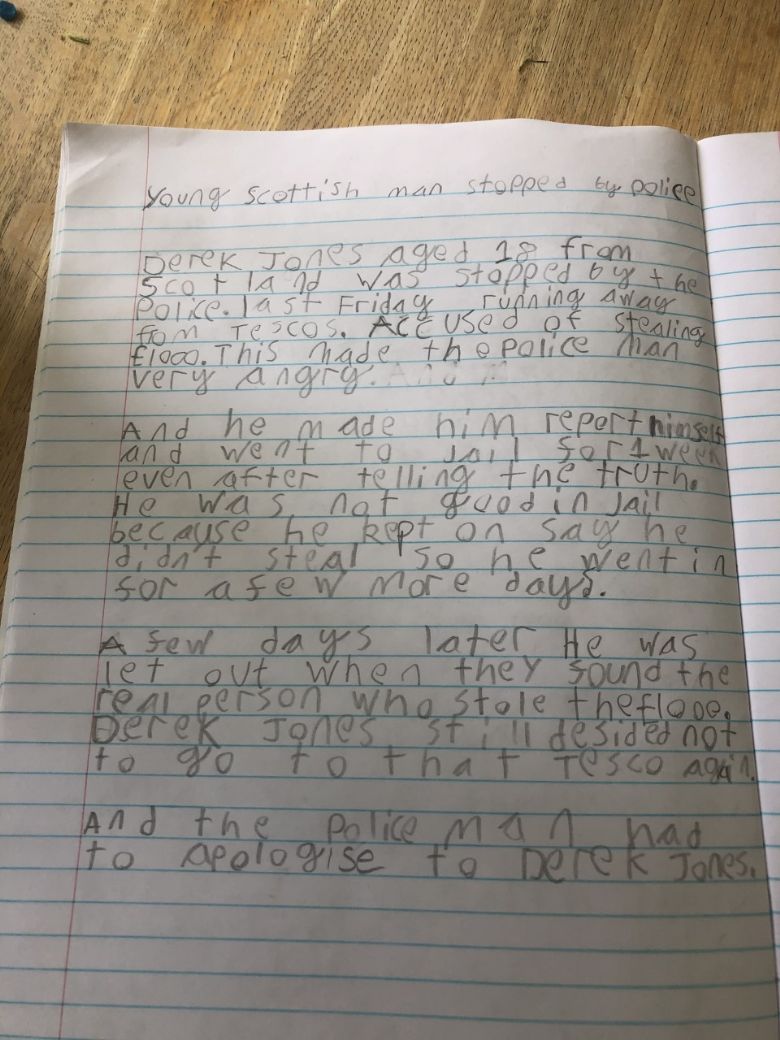 Young scottish man stopped by police
Derek Jones aged 18 from
Scotland was stopped by the
Police. last Friday running away
from Tescos. Accused of stealing
£1000. This made the police man
very angry.
And he made him report himself
and went to Jail for 1 week
even after telling the truth.
He was not good in Jail
because he kept on say he
didn't steal so he went in
for a few more days.
A few days later He was
let out when they found the
real person who stole the £1000.
Derek Jones still desided not
to go to that Tesco again.
And the police man had
to apologise to Derek Jones.